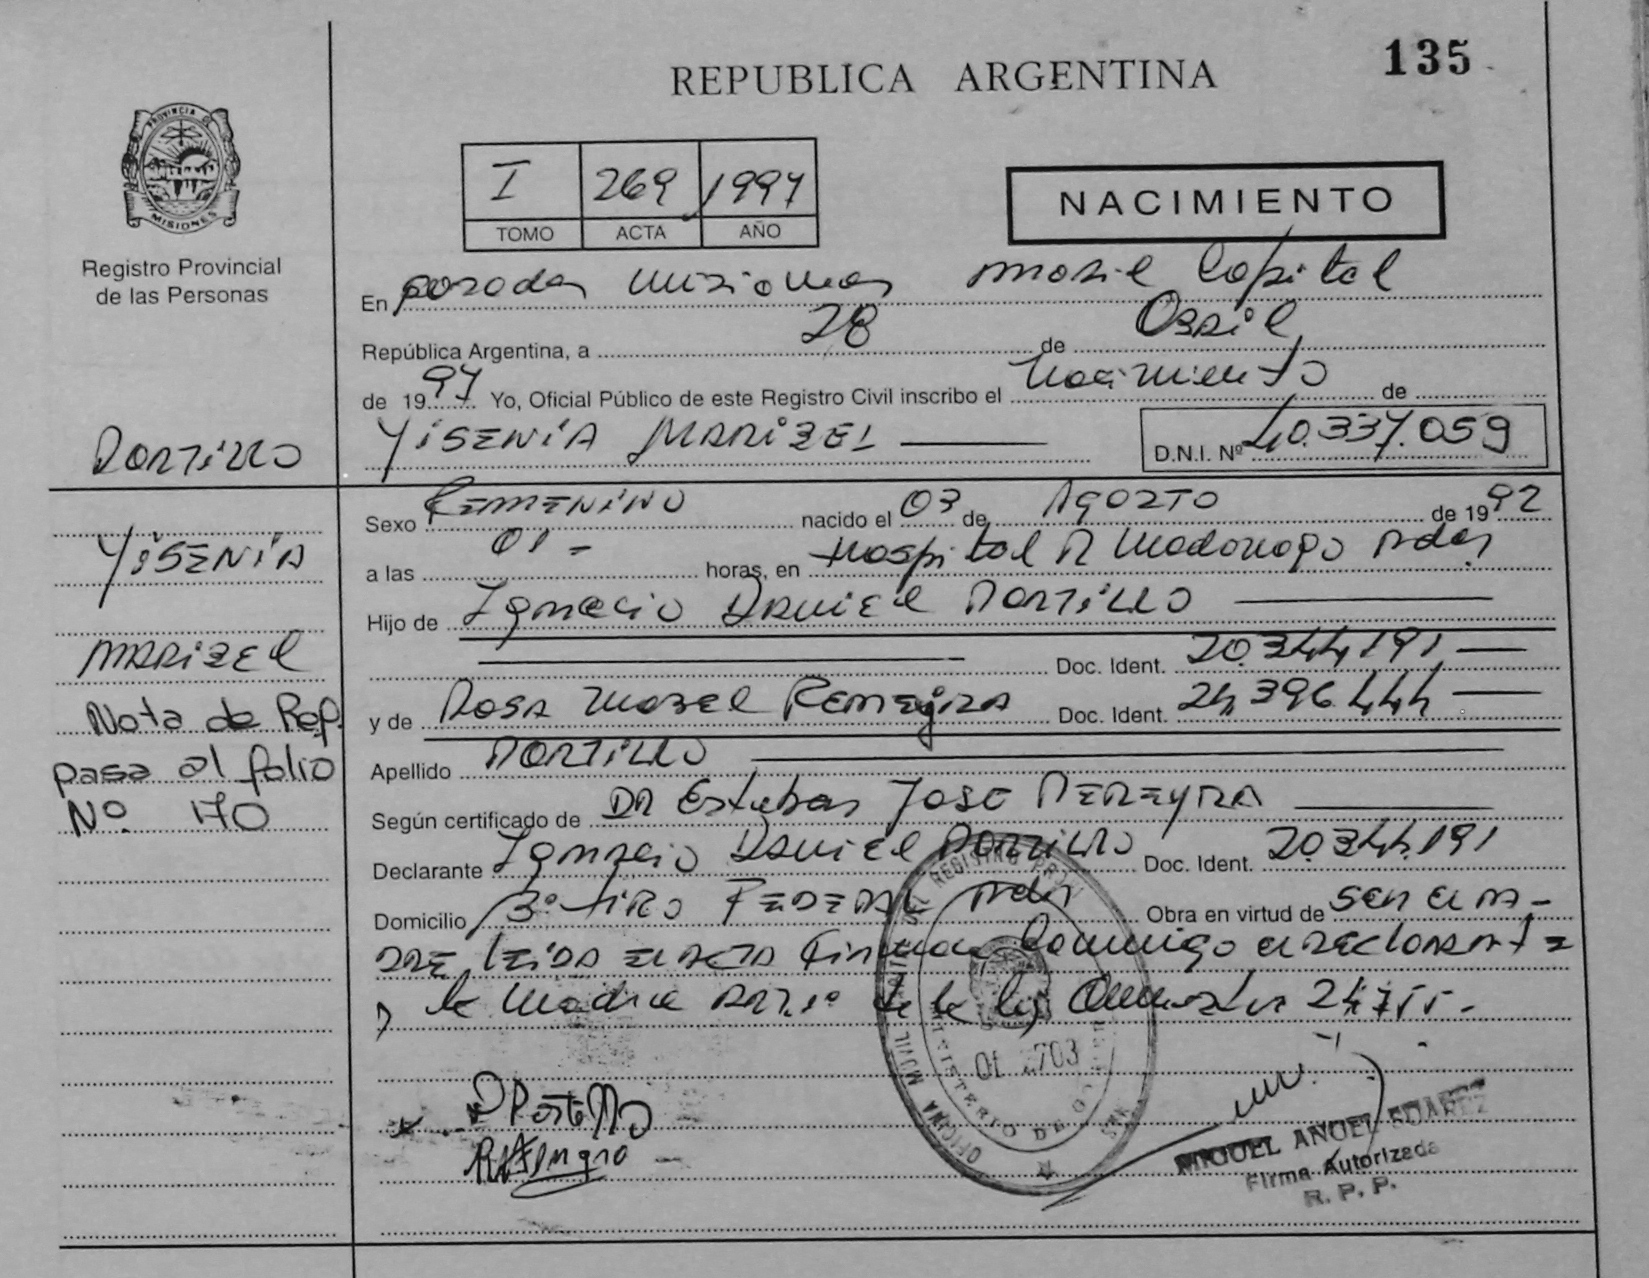 135
REPUBLICA ARGENTINA
PROVINCIA DE
MISIONES
Registro Provincial
de las Personas
I 269 1997
TOMO ACTA AÑO
NACIMIENTO
En posadas misiones movil Capital
República Argentina, a 28 de Abril
de 1997 Yo, Oficial Público de este Registro Civil inscribo el Nacimiento de
YISENIA MARIZEL D.N.I. Nº 40.337.059
PORTILLO
YISENIA
MARIZEL
Nota de Rep.
pasa al folio
Nº 170
Sexo FEMENINO nacido el 03 de AGOZTO de 1992
a las 01 - horas, en Hospital R Madariaga Pdas
Hijo de Ignacio DANIEL PORTILLO
Doc. Ident. 20.344.191
y de ROSA Mabel FERREYRA Doc. Ident. 24.396.444
Apellido PORTILLO
Según certificado de DR Esteban JOSE PEREYRA
Declarante Ignacio DANIEL PORTILLO Doc. Ident. 20.344.191
Domicilio Bº TIRO FEDERAL Pdas Obra en virtud de SER EL PA-
DRE LEIDA EL ACTA Firman Conmigo el DECLARANTE
y la Madre de la ley
OFICINA MOVIL
MINISTERIO DE
MIGUEL ANGEL SUAREZ
Firma Autorizada
R. P. P.